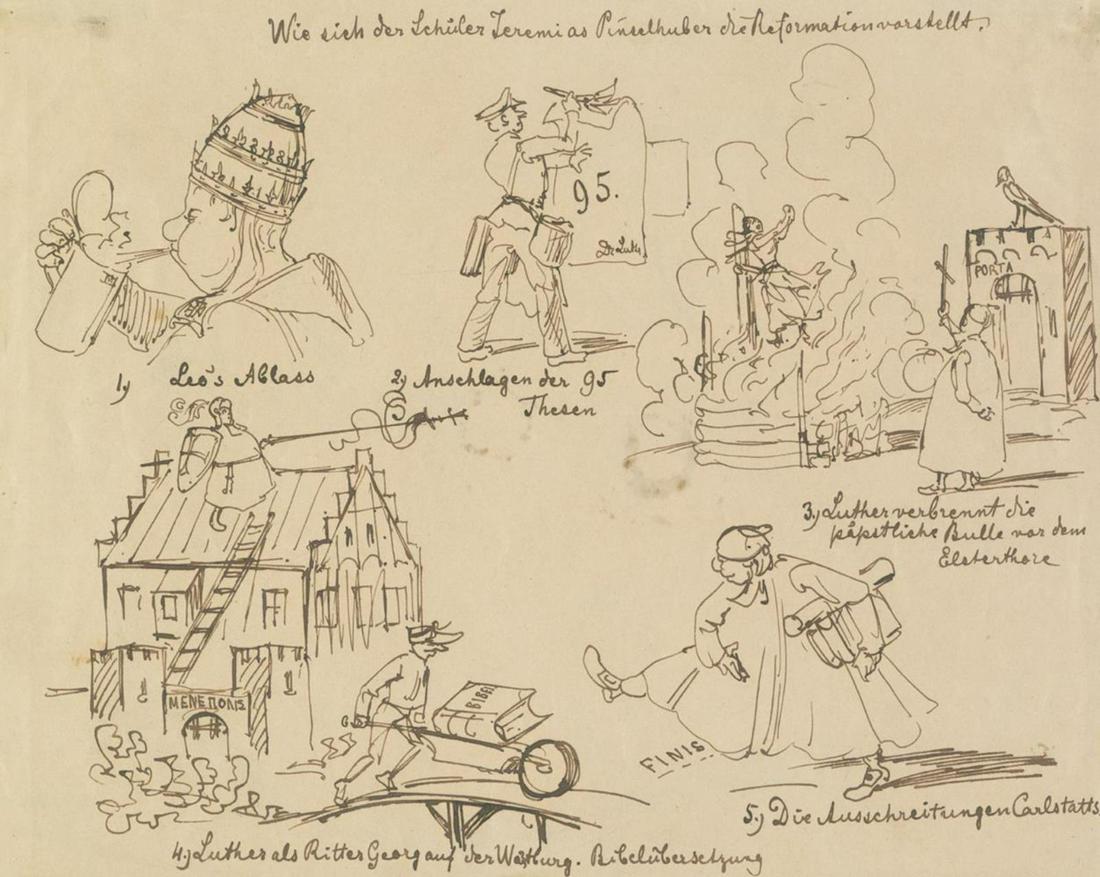 Wie sich der Schüler Jeremias Pinselhuber die Reformation vorstellt.
1) Leo's Ablass
95.
Dr Luth
2) Anschlagen der 95
Thesen
PORTA
3.) Luther verbrennt die
päpstliche Bulle vor dem
Elsterthore
ΜΕΝΕΠΟΛΙΣ
BIBEL
4.) Luther als Ritter Georg auf der Wartburg. Bibelübersetzung
FINIS
5.) Die Ausschreitungen Carlstatts